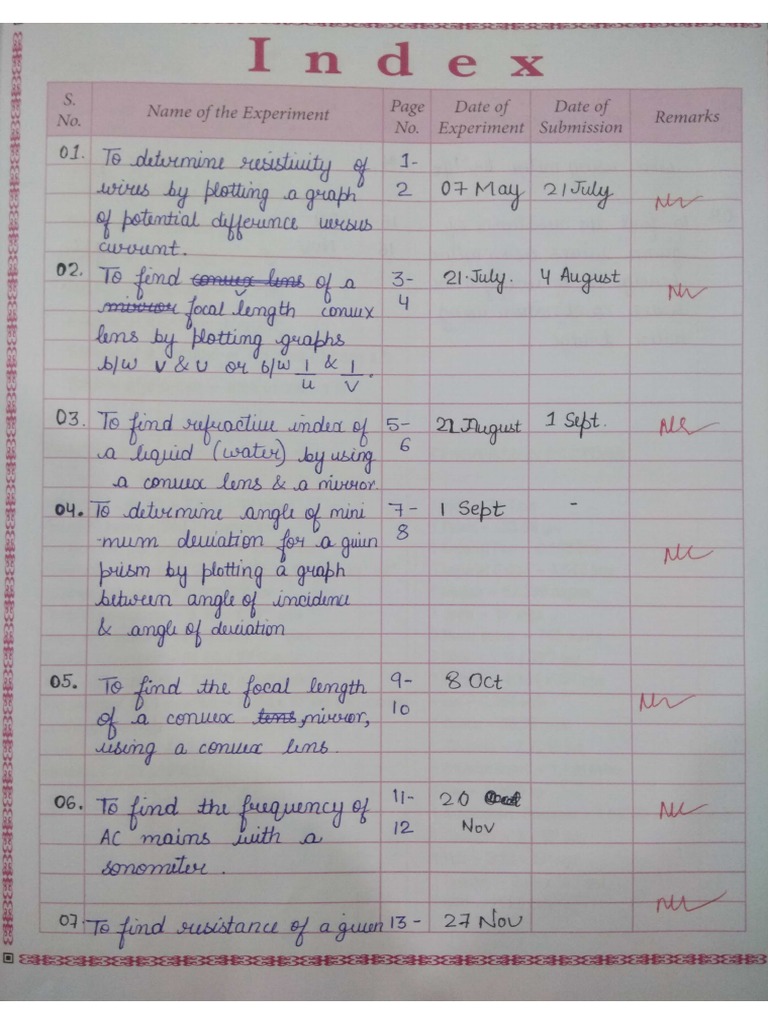 Index
S. No. Name of the Experiment Page No. Date of Experiment Date of Submission Remarks
01. To determine resistivity of 1-
wires by plotting a graph 2 07 May 21 July
of potential difference versus
current.
02. To find convex lens of a 3- 21 July. 4 August
mirror focal length convex 4
lens by plotting graphs
b/w v & u or b/w 1/u & 1/v.
03. To find refractive index of 5- 21 August 1 Sept.
a liquid (water) by using 6
a convex lens & a mirror.
04. To determine angle of mini 7- 1 Sept -
-mum deviation for a given 8
prism by plotting a graph
between angle of incidence
& angle of deviation
05. To find the focal length 9- 8 Oct
of a convex lens, mirror, 10
using a convex lens.
06. To find the frequency of 11- 20
AC mains with a 12 Nov
sonometer.
07. To find resistance of a given 13- 27 Nov